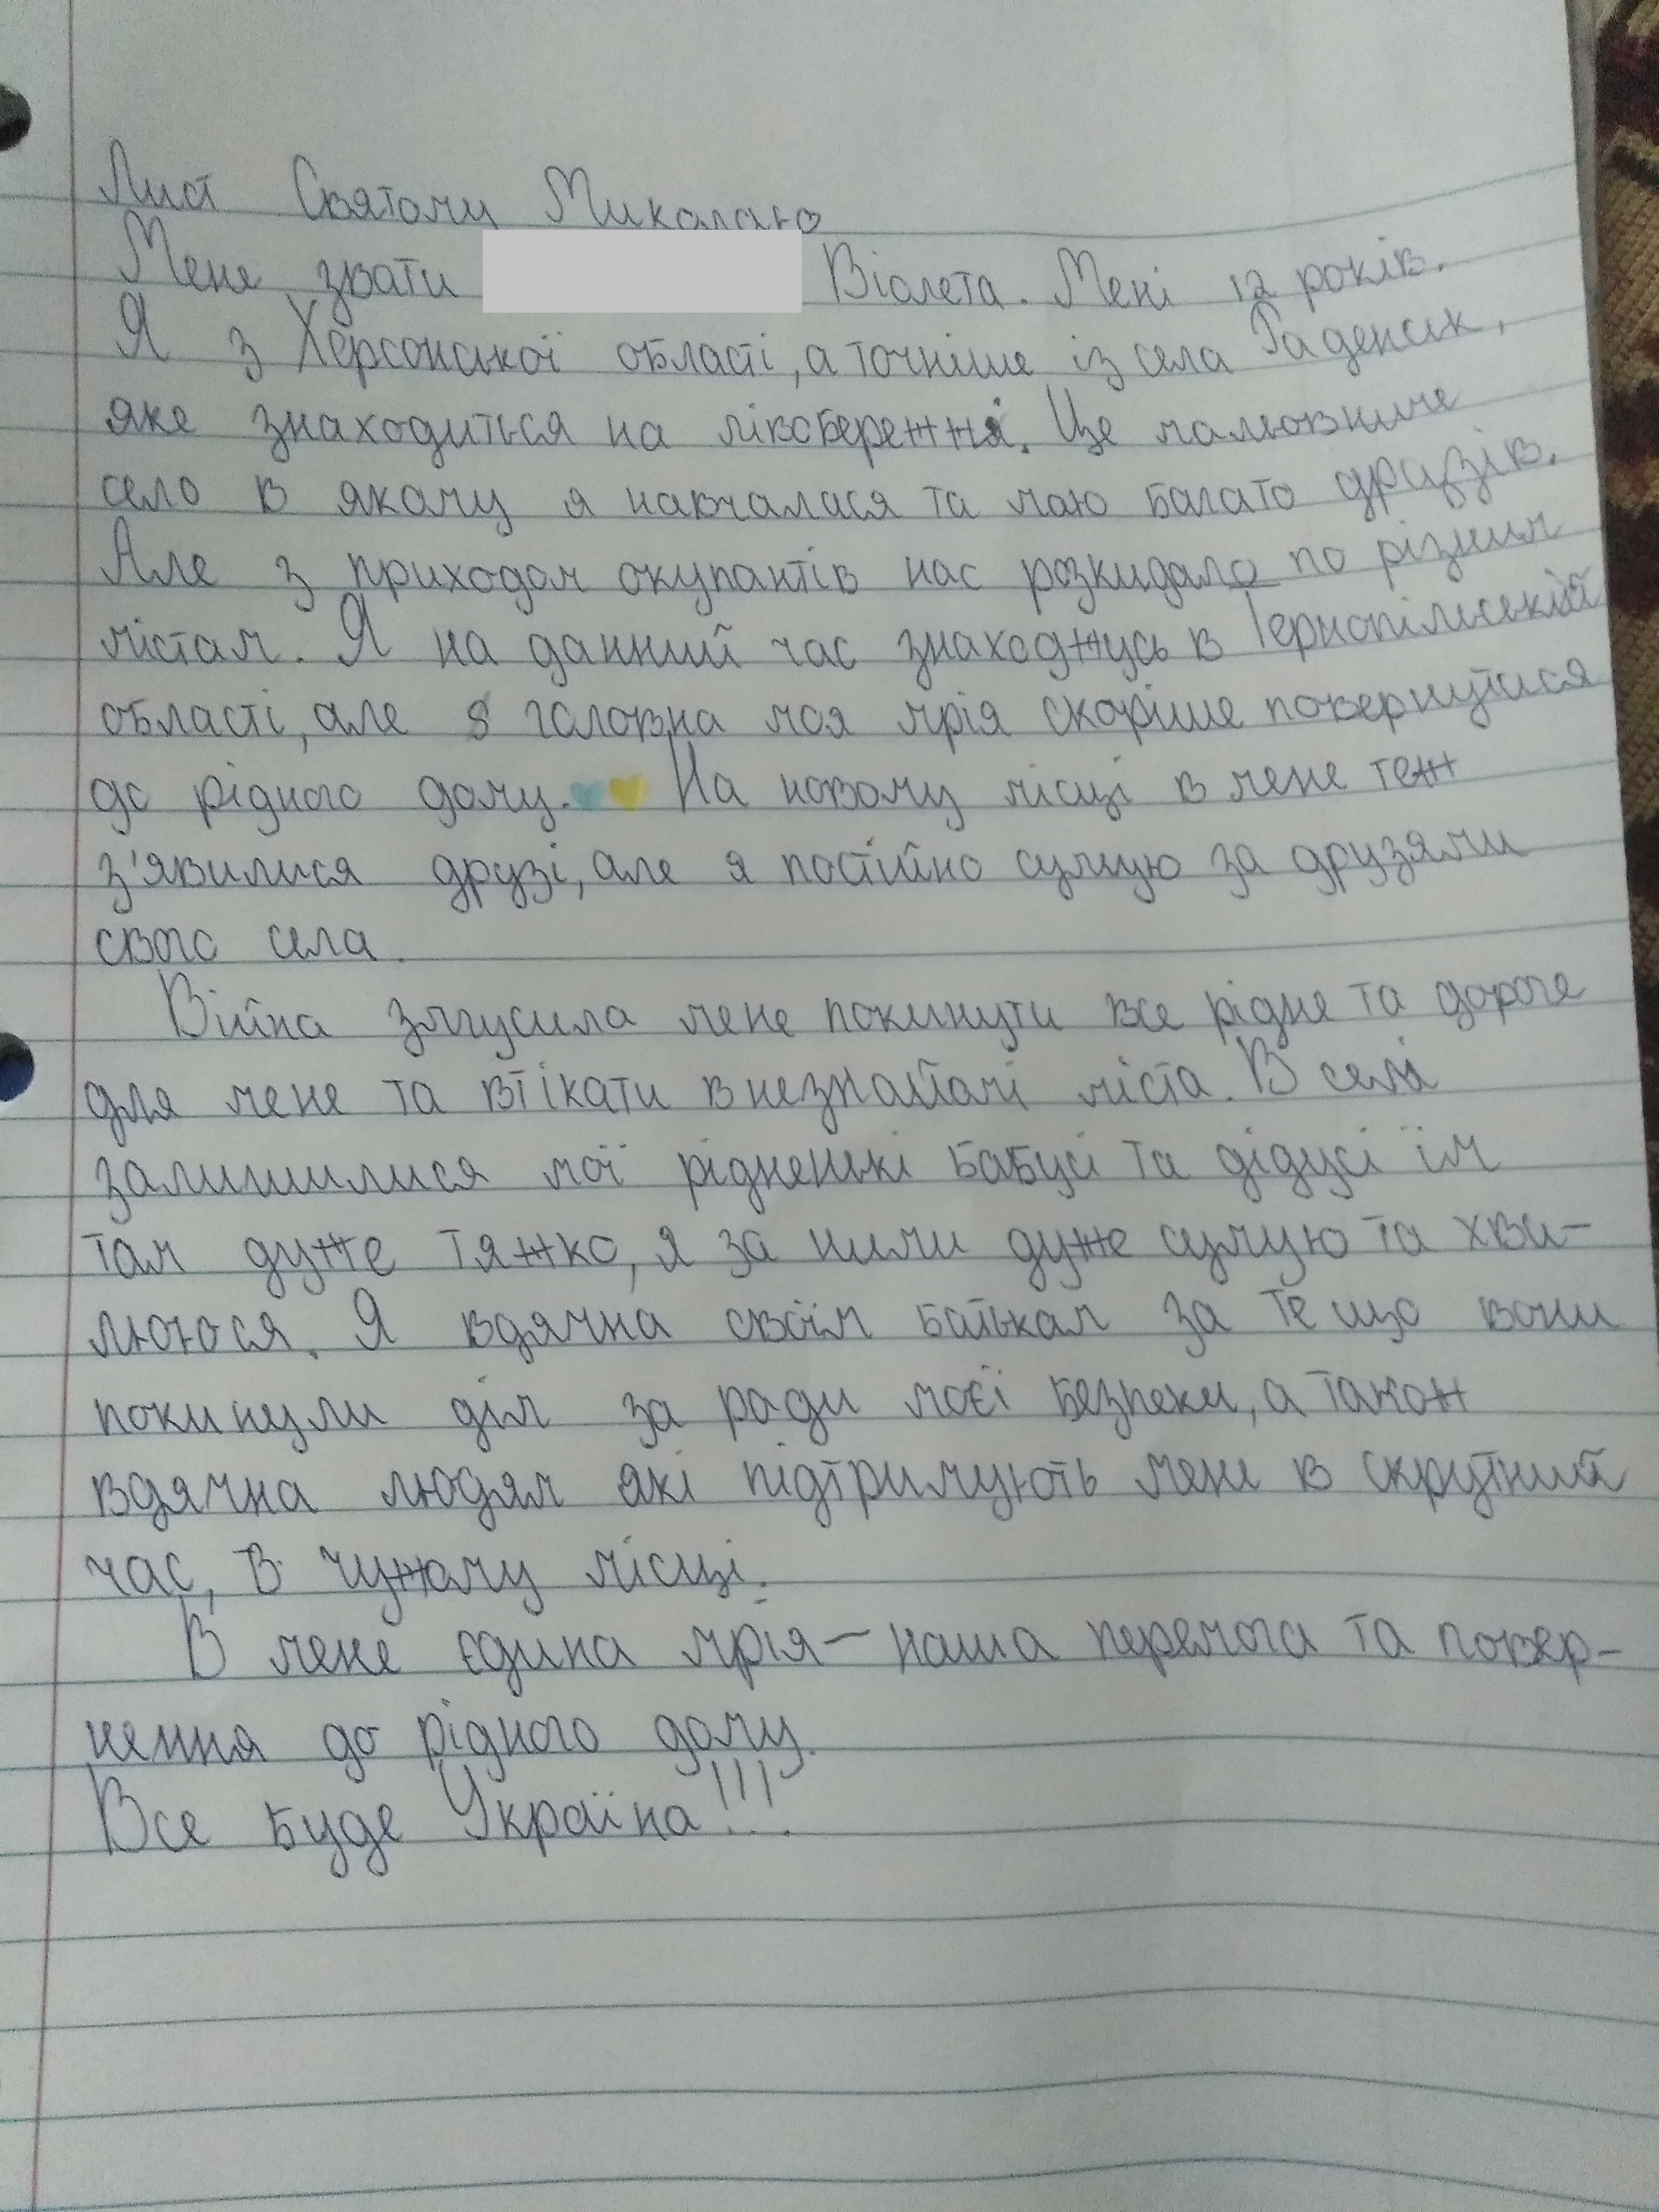 Лист Святому Миколаю
Мене звати Віолета. Мені 12 років.
Я з Херсонської області, а точніше із села Раденськ,
яке знаходиться на лівобережжі. Це мальовниче
село в якому я навчалася та маю багато друзів.
Але з приходом окупантів нас розкидало по різним
містам. Я на данний час знаходжусь в Тернопільській
області, але головна моя мрія скоріше повернутися
до рідного дому. На новому місці в мене теж
з'явилися друзі, але я постійно сумую за друзями
свого села.
Війна змусила мене покинути все рідне та дороге
для мене та втікати в незнайомі міста. В селі
залишилися мої рідненькі бабусі та дідусі їм
там дуже тяжко, я за ними дуже сумую та хви-
лююся. Я вдячна своїм батькам за те що вони
покинули дім за ради моєї безпеки, а також
вдячна людям які підтримують мене в скрутний
час, в чужому місці.
В мене єдина мрія — наша перемога та повер-
нення до рідного дому.
Все буде Україна!!!